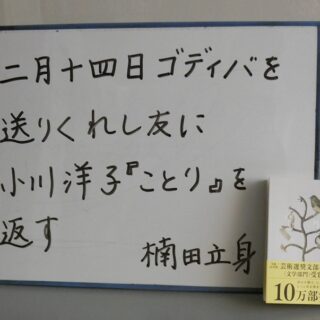 二月十四日ゴディバを
送りくれし友に
小川洋子『ことり』を
返す
楠田立身
芸術選奨文部
文学部門
10万部